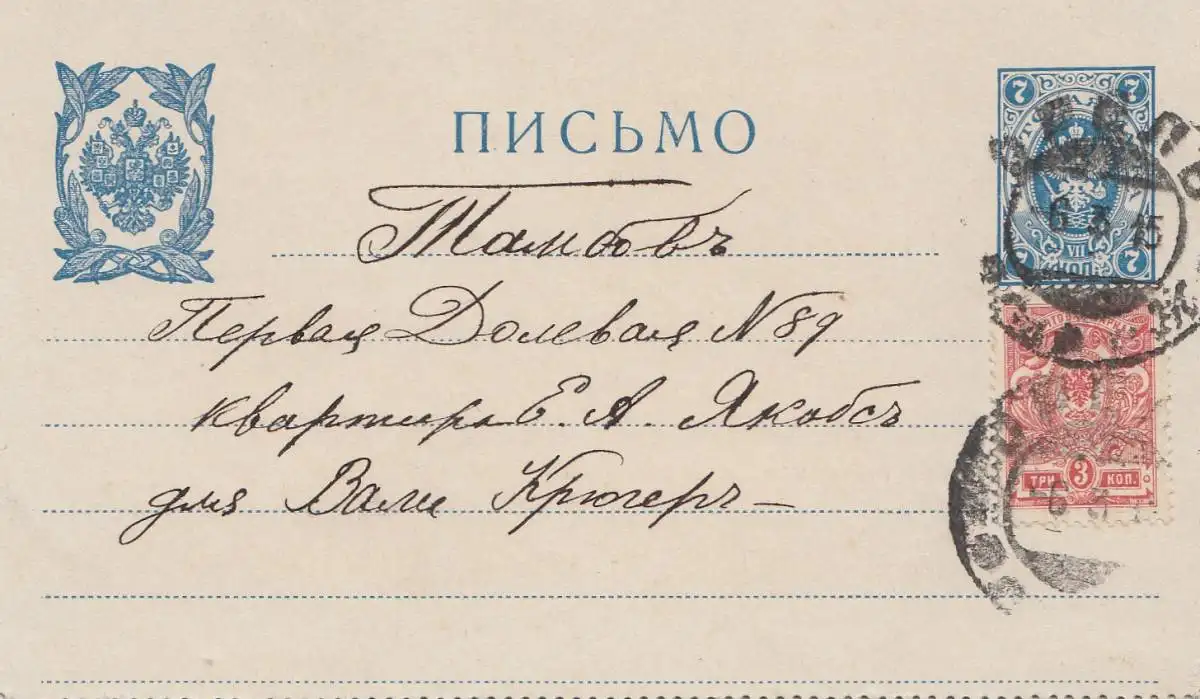 ПИСЬМО
7 7
Тамбовъ
6 3 15
VII
КОП.
7 7
Первая Долевая N 89
квартира Е. А. Якобсъ
ТРИ 3 КОП.
для Вали Крюгеръ —